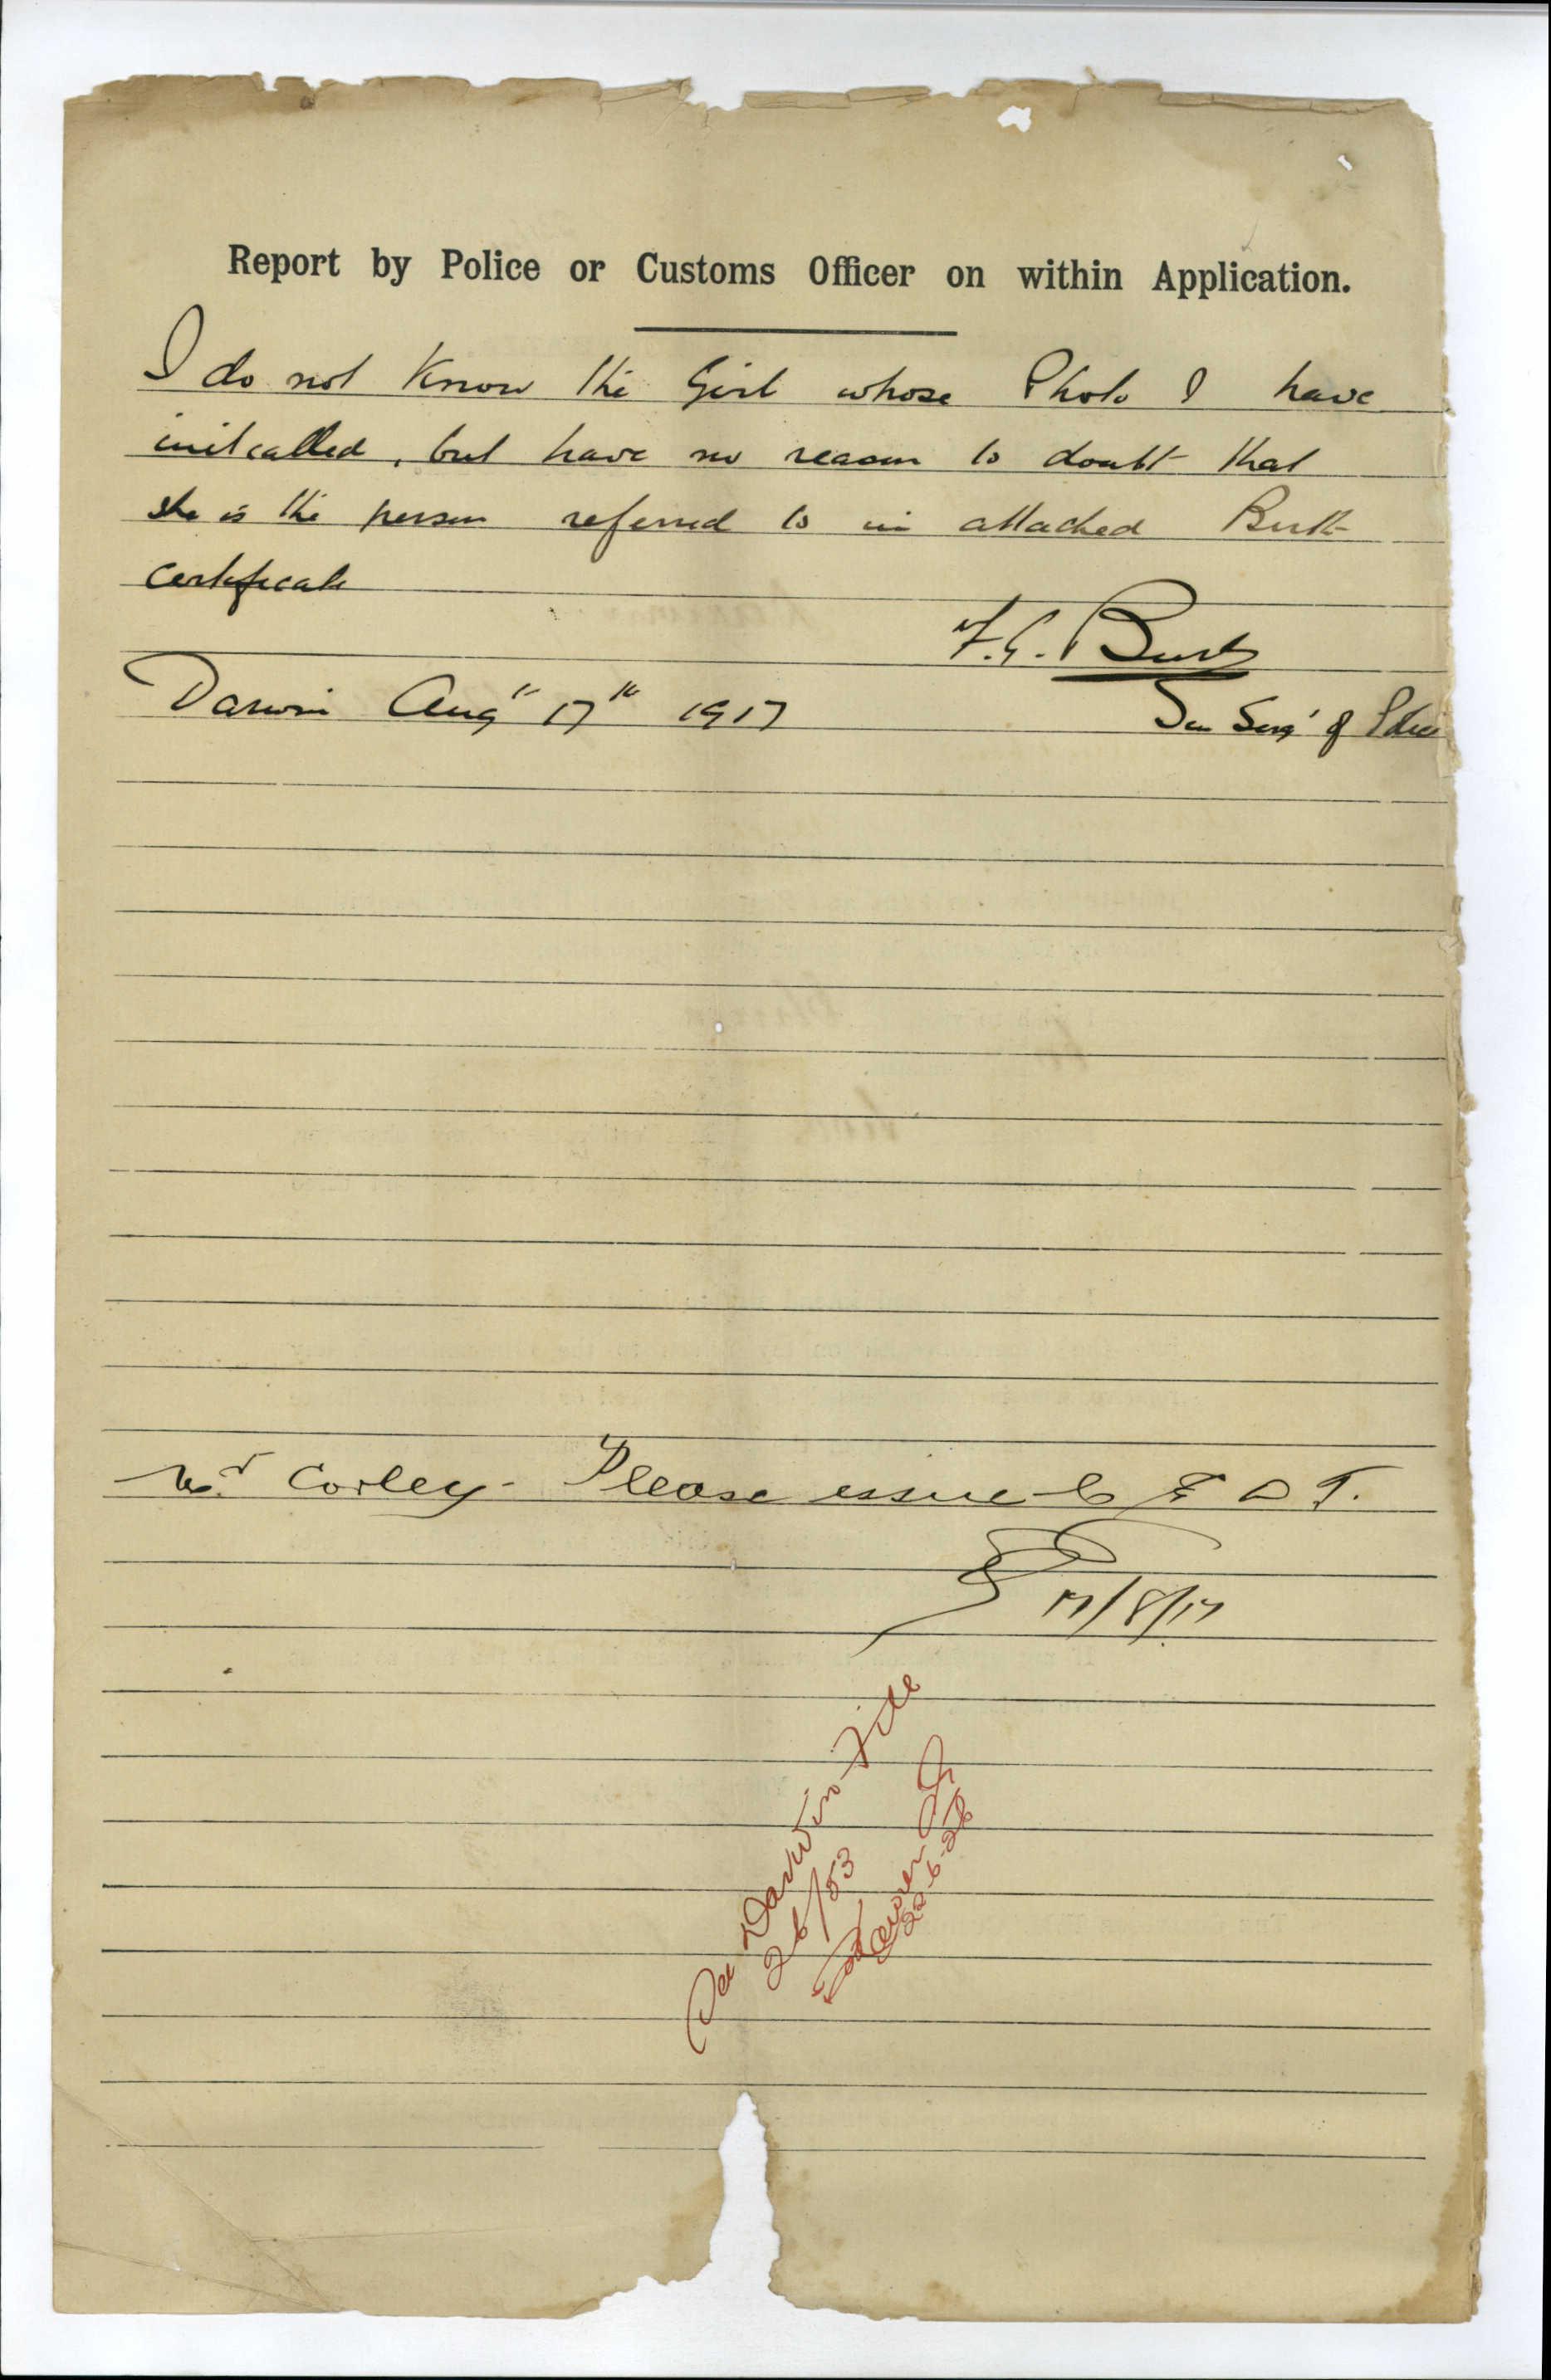 Report by Police or Customs Officer on within Application.
I do not Know the Girl whose Photo I have
initcalled, but have no reason to doubt that
she is the person referred to in attached Birth
Certificate
Darwin Augt 17th 1917
Sen Sergt of Police
Mr Corley - Please issue C E D T.
17/8/17
See Darwin File
26/53
22-6-26